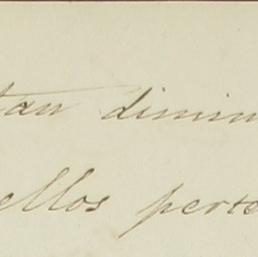 tan dimin
ellos perte